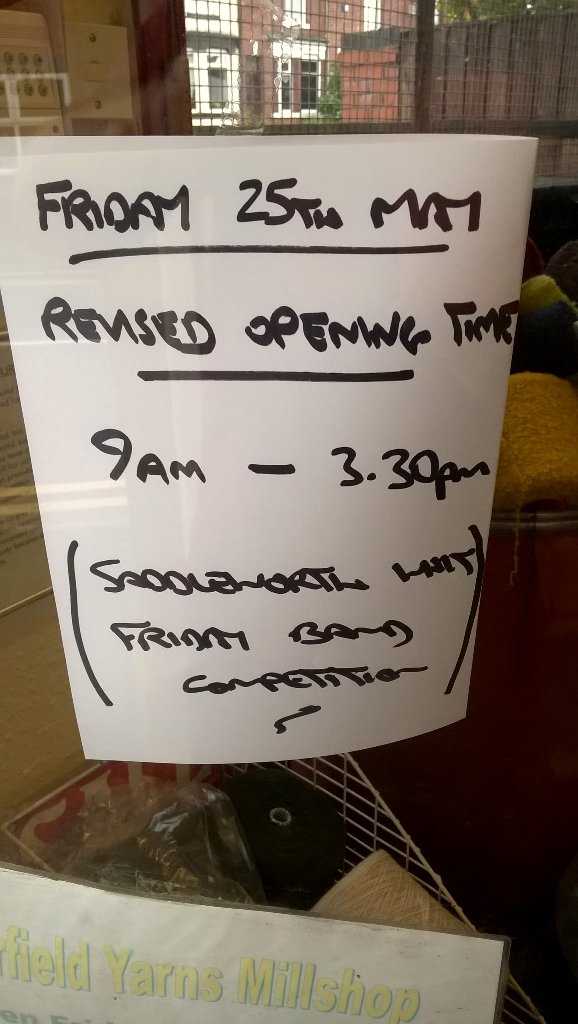 FRIDAY 25TH MAY
REVISED OPENING TIME
9AM - 3.30pm
(SADDLEWORTH WHIT
FRIDAY BAND
COMPETITION)
rfield Yarns Millshop
en Fri